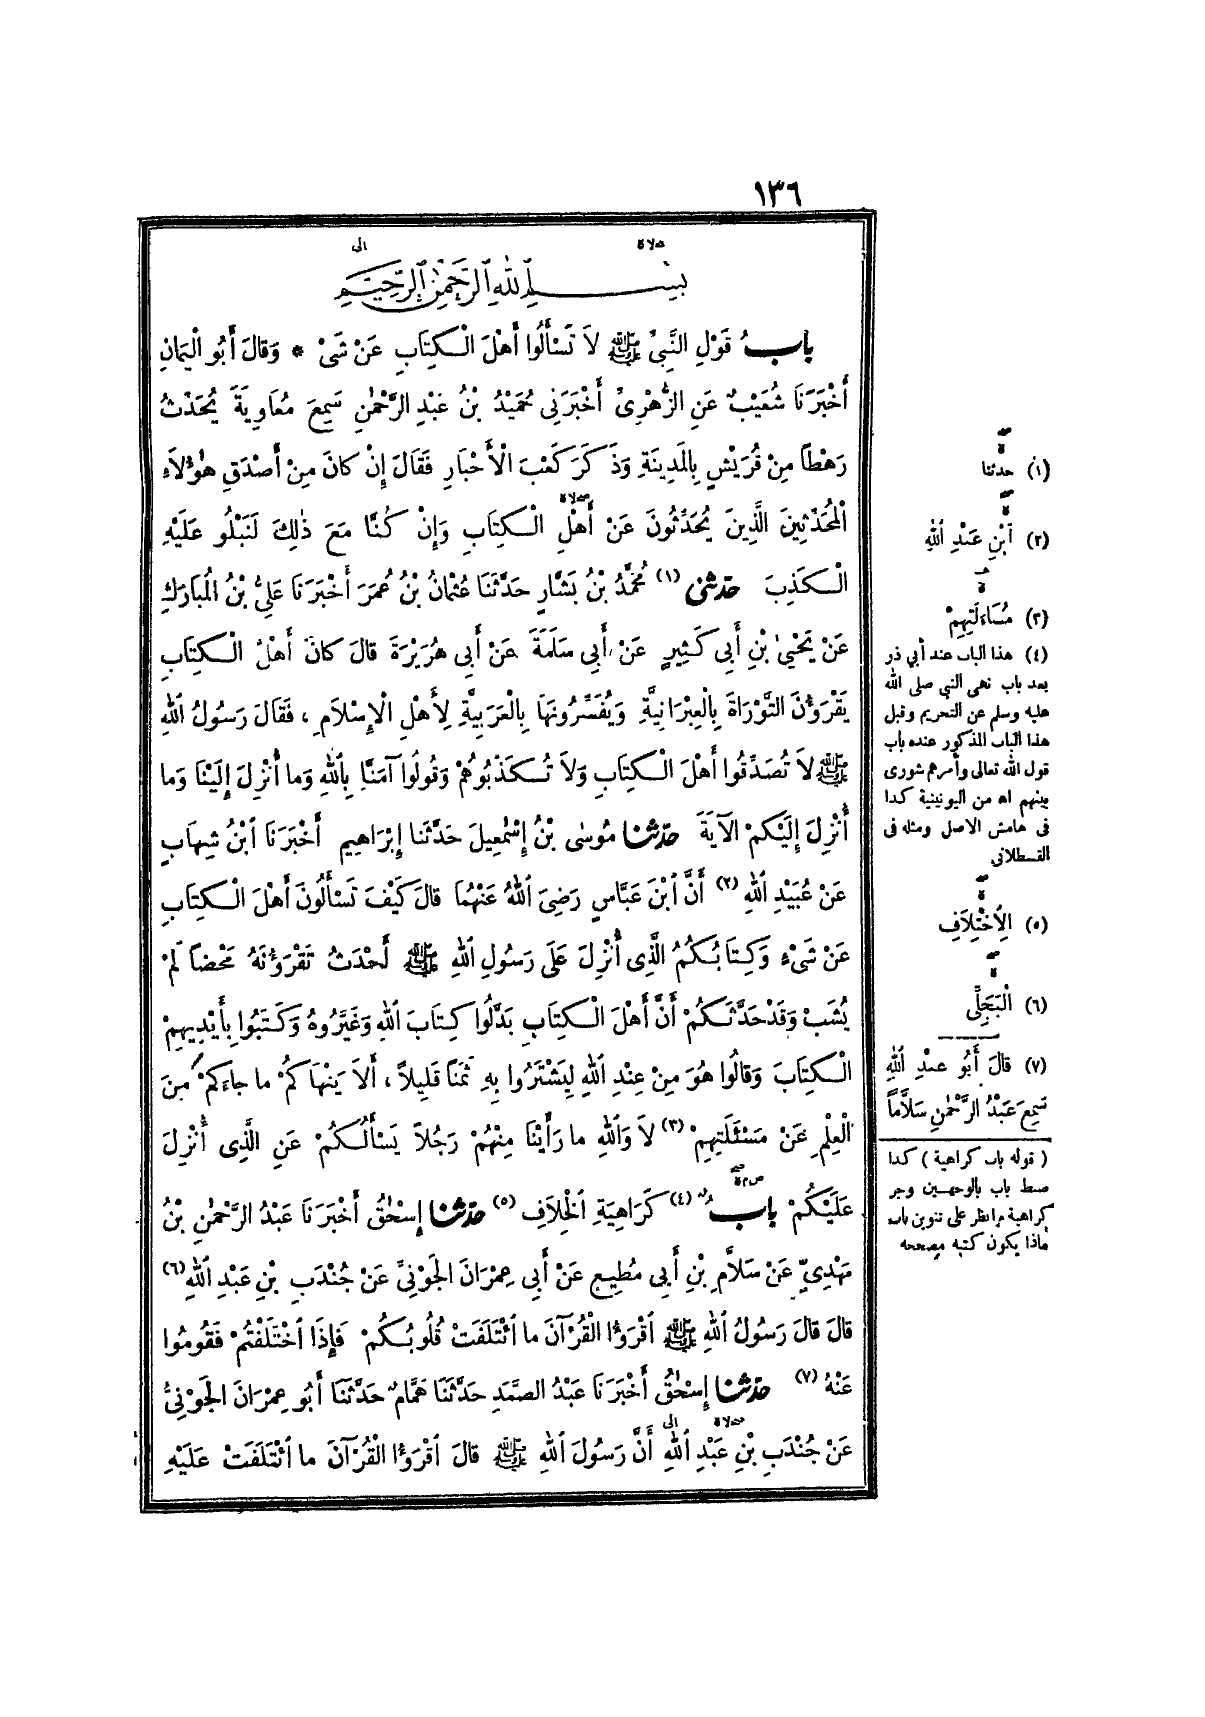 ١٣٦
صلاة الى
بسم الله الرحمن الرحيم
بَابُ قَوْلِ النَّبِيِّ ﷺ لَا تَسْأَلُوا أَهْلَ الْكِتَابِ عَنْ شَىْءٍ * وَقَالَ أَبُو الْيَمَانِ
أَخْبَرَنَا شُعَيْبٌ عَنِ الزُّهْرِيِّ أَخْبَرَنِي حُمَيْدُ بْنُ عَبْدِ الرَّحْمٰنِ سَمِعَ مُعَاوِيَةَ يُحَدِّثُ
رَهْطًا مِنْ قُرَيْشٍ بِالْمَدِينَةِ وَذَكَرَ كَعْبَ الْأَحْبَارِ فَقَالَ إِنْ كَانَ مِنْ أَصْدَقِ هٰؤُلَاءِ
الْمُحَدِّثِينَ الَّذِينَ يُحَدِّثُونَ عَنْ أَهْلِ الْكِتَابِ وَإِنْ كُنَّا مَعَ ذٰلِكَ لَنَبْلُو عَلَيْهِ
الْكَذِبَ حَدَّثَنِي (١) مُحَمَّدُ بْنُ بَشَّارٍ حَدَّثَنَا عُثْمَانُ بْنُ عُمَرَ أَخْبَرَنَا عَلِيُّ بْنُ الْمُبَارَكِ
عَنْ يَحْيٰى بْنِ أَبِي كَثِيرٍ عَنْ أَبِي سَلَمَةَ عَنْ أَبِي هُرَيْرَةَ قَالَ كَانَ أَهْلُ الْكِتَابِ
يَقْرَؤُنَ التَّوْرَاةَ بِالْعِبْرَانِيَّةِ وَيُفَسِّرُونَهَا بِالْعَرَبِيَّةِ لِأَهْلِ الْإِسْلَامِ ، فَقَالَ رَسُولُ اللهِ
ﷺ لَا تُصَدِّقُوا أَهْلَ الْكِتَابِ وَلَا تُكَذِّبُوهُمْ وَقُولُوا آمَنَّا بِاللهِ وَمَا أُنْزِلَ إِلَيْنَا وَمَا
أُنْزِلَ إِلَيْكُمْ الْآيَةَ حَدَّثَنَا مُوسٰى بْنُ إِسْمٰعِيلَ حَدَّثَنَا إِبْرَاهِيمُ أَخْبَرَنَا ابْنُ شِهَابٍ
عَنْ عُبَيْدِ اللهِ (٢) أَنَّ ابْنَ عَبَّاسٍ رَضِيَ اللهُ عَنْهُمَا قَالَ كَيْفَ تَسْأَلُونَ أَهْلَ الْكِتَابِ
عَنْ شَىْءٍ وَكِتَابُكُمُ الَّذِي أُنْزِلَ عَلَى رَسُولِ اللهِ ﷺ أَحْدَثُ تَقْرَؤُنَهُ مَحْضًا لَمْ
يُشَبْ وَقَدْ حَدَّثَكُمْ أَنَّ أَهْلَ الْكِتَابِ بَدَّلُوا كِتَابَ اللهِ وَغَيَّرُوهُ وَكَتَبُوا بِأَيْدِيهِمِ
الْكِتَابَ وَقَالُوا هُوَ مِنْ عِنْدِ اللهِ لِيَشْتَرُوا بِهِ ثَمَنًا قَلِيلًا ، أَلَا يَنْهَاكُمْ مَا جَاءَكُمْ مِنَ
الْعِلْمِ عَنْ مَسْئَلَتِهِمْ (٣) لَا وَاللهِ مَا رَأَيْنَا مِنْهُمْ رَجُلًا يَسْأَلُكُمْ عَنِ الَّذِي أُنْزِلَ
عَلَيْكُمْ بَابُ (٤) كَرَاهِيَةِ الْخِلَافِ (٥) حَدَّثَنَا إِسْحٰقُ أَخْبَرَنَا عَبْدُ الرَّحْمٰنِ بْنُ
مَهْدِيٍّ عَنْ سَلَّامِ بْنِ أَبِي مُطِيعٍ عَنْ أَبِي عِمْرَانَ الْجَوْنِيِّ عَنْ جُنْدَبِ بْنِ عَبْدِ اللهِ (٦)
قَالَ قَالَ رَسُولُ اللهِ ﷺ اقْرَؤُا الْقُرْآنَ مَا ائْتَلَفَتْ قُلُوبُكُمْ فَإِذَا اخْتَلَفْتُمْ فَقُومُوا
عَنْهُ (٧) حَدَّثَنَا إِسْحٰقُ أَخْبَرَنَا عَبْدُ الصَّمَدِ حَدَّثَنَا هَمَّامٌ حَدَّثَنَا أَبُو عِمْرَانَ الْجَوْنِيُّ
عَنْ جُنْدَبِ بْنِ عَبْدِ اللهِ أَنَّ رَسُولَ اللهِ ﷺ قَالَ اقْرَؤُا الْقُرْآنَ مَا ائْتَلَفَتْ عَلَيْهِ
(١) حدثنا
(٢) ابْنِ عَبْدِ اللهِ
(٣) مُسَاءَلَتِهِمْ
(٤) هذا الباب عند أبي ذر
بعد باب نهى النبي صلى الله
عليه وسلم عن التحريم وقبل
هذا الباب المذكور عنده باب
قول الله تعالى وأمرهم شورى
بينهم اه من اليونينية كذا
فى هامش الاصل ومثله فى
القسطلانى
(٥) الِاخْتِلَافِ
(٦) الْبَجَلِيِّ
(٧) قَالَ أَبُو عَبْدِ اللهِ
سَمِعَ عَبْدُ الرَّحْمٰنِ سَلَّامًا
( قوله باب كراهية ) كذا
ضبط باب بالوجهين وجر
كراهية وانظر على تنوين باب
ماذا يكون كتبه مصححه